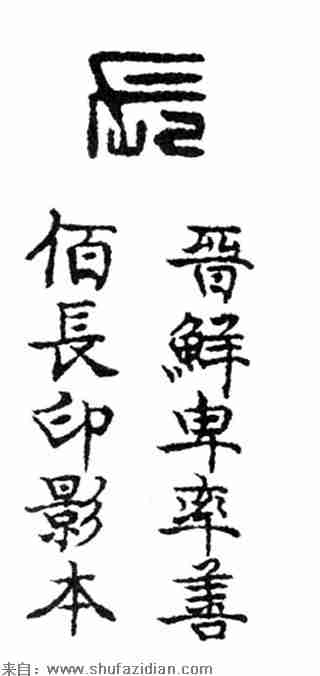 長
晉鮮卑率善
佰長印影本
来自：www.shufazidian.com